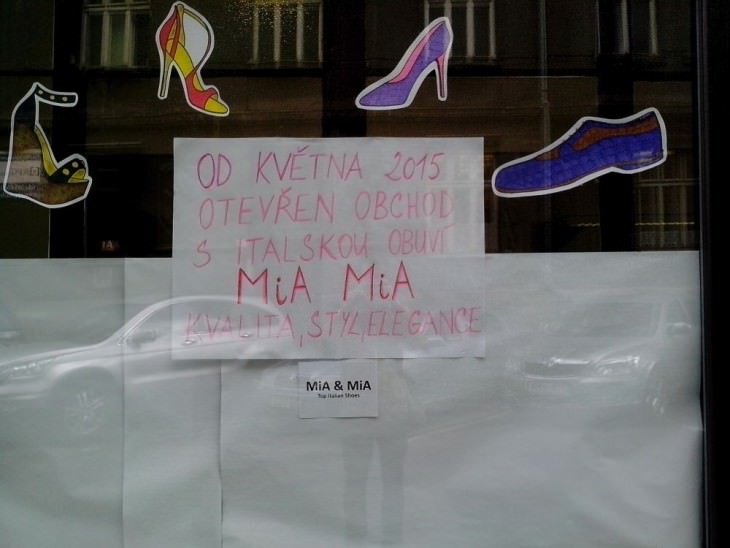 OD KVĚTNA 2015
OTEVŘEN OBCHOD
S ITALSKOU OBUVÍ
MiA MiA
KVALITA, STYL, ELEGANCE
MiA & MiA
Top Italian Shoes